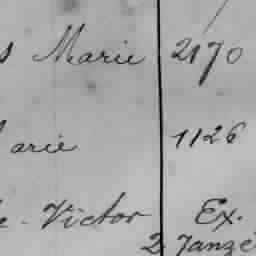 s Marie 2170
Marie 1126
e-Victor Ex.
2 Janze